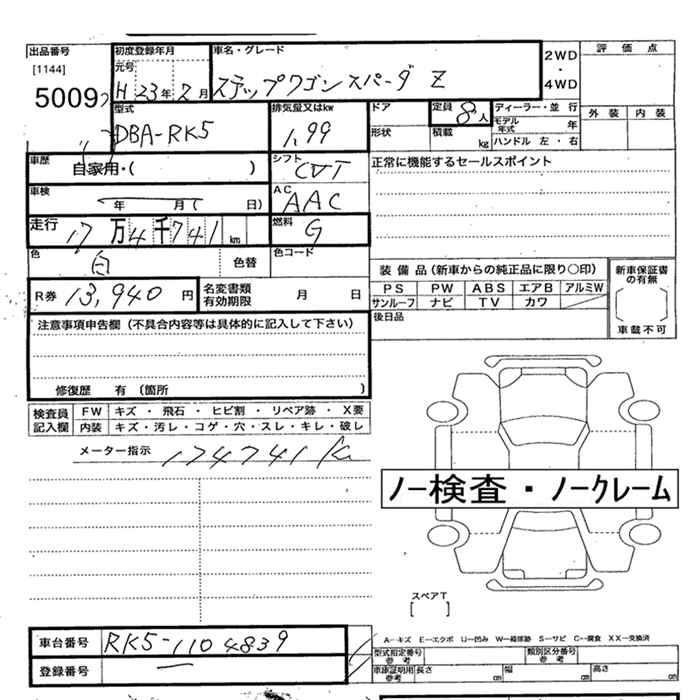 出品番号
[1144]
5009
初度登録年月
元号
H 23年 2月
車名・グレード
ステップワゴンスパーダ Z
2WD
・
4WD
評価点
外装 内装
型式
DBA-RK5
排気量又はkw
1.99
ドア
形状
定員
8人
積載
kg
ディーラー・並行
モデル年式 年
ハンドル 左・右
車歴
自家用・( )
シフト
CVT
正常に機能するセールスポイント
車検
年 月 日)
AC
AAC
走行
17万4千741km
燃料
G
色
白
色替
色コード
装備品(新車からの純正品に限り○印)
PS PW ABS エアB アルミW
サンルーフ ナビ TV カワ
後日品
新車保証書の有無
車載不可
R券 13,940 円
名変書類有効期限 月 日
注意事項申告欄(不具合内容等は具体的に記入して下さい)
修復歴 有 (箇所 )
検査員記入欄
FW キズ・飛石・ヒビ割・リペア跡・X要
内装 キズ・汚レ・コゲ・穴・スレ・キレ・破レ
メーター指示 174741 K
ノー検査・ノークレーム
スペアT
[ ]
車台番号 RK5-1104839
登録番号 —
A—キズ E—エクボ U—凹み W—補修跡 S—サビ C—腐食 XX—交換済
型式指定番号参考
類別区分番号参考
車庫証明用参考 長さ cm 幅 cm 高さ cm